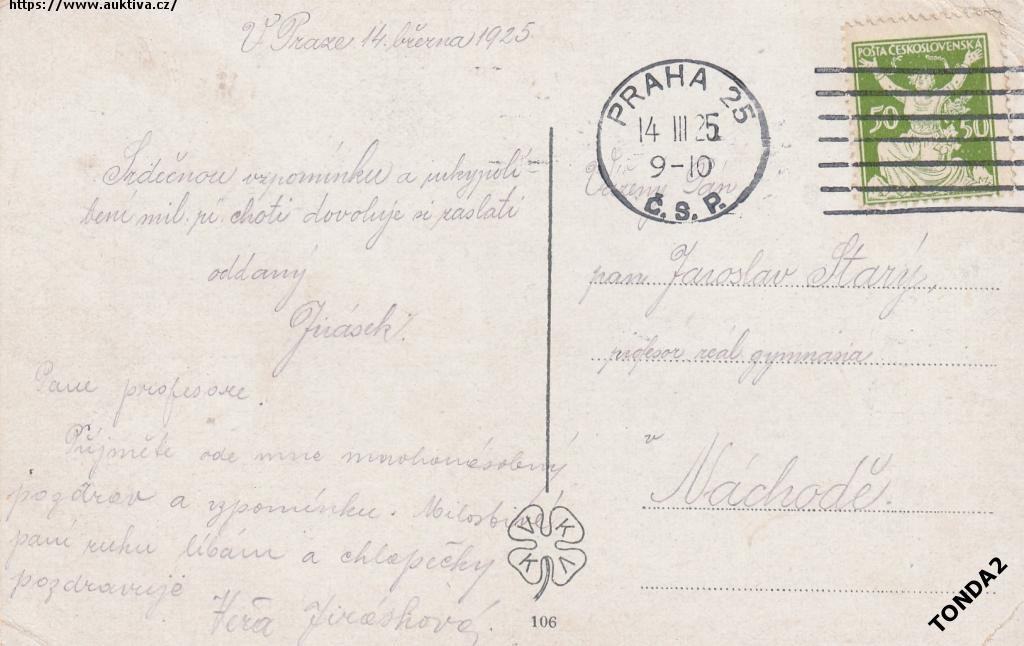 https://www.auktiva.cz/
V Praze 14. března 1925.
Srdečnou vzpomínku a rukypolí-
bení mil. pí. choti dovoluje si zaslati
oddaný
Jirásek.
Pane profesore.
Přijměte ode mne mnohonásobný
pozdrav a vzpomínku. Milostivé
paní ruku líbám a chlapečky
pozdravuje
Věra Jirásková.
PRAHA 25
14 III 25
9-10
Č. S. P.
POŠTA ČESKOSLOVENSKÁ
50 50
Vážený Pán
pan Jaroslav Starý,
profesor reál. gymnasia
v
Náchodě.
V K
K V
106
TONDA2